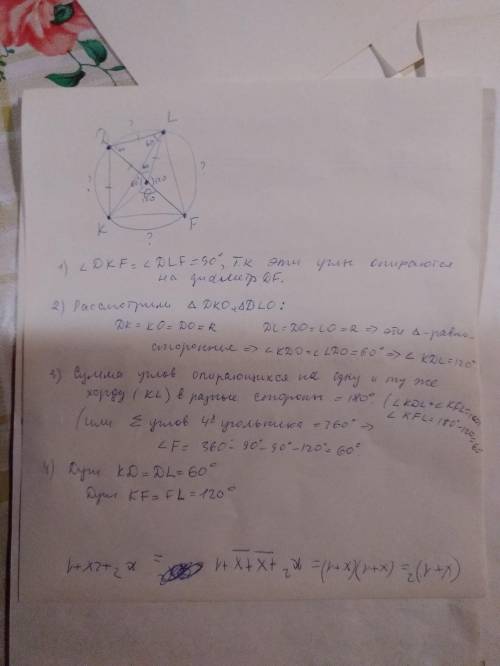 ?
D L
60 60
? ?
60 60 120
120
K F
?
1) ∠DKF = ∠DLF = 90°, т.к эти углы опираются
на диаметр DF.
2) Рассмотрим Δ DKO и ΔDLO:
DK = KO = DO = R DL = DO = LO = R ⇒ эти Δ-равно-
сторонние ⇒ ∠KDO = ∠LDO = 60° ⇒ ∠ KDL = 120°
3) Сумма углов опирающихся на одну и ту же
хорду (KL) в разные стороны = 180°. (∠KDL + ∠KFL = 180
∠ KFL = 180° - 120 = 60
(или Σ углов 4х угольника = 360° ⇒
∠F = 360° - 90° - 90° - 120° = 60°.
4) Дуги KD = DL = 60°
Дуги KF = FL = 120°
(x+1)² = (x+1)(x+1) = x² + x + x + 1 = x² + 2x + 1